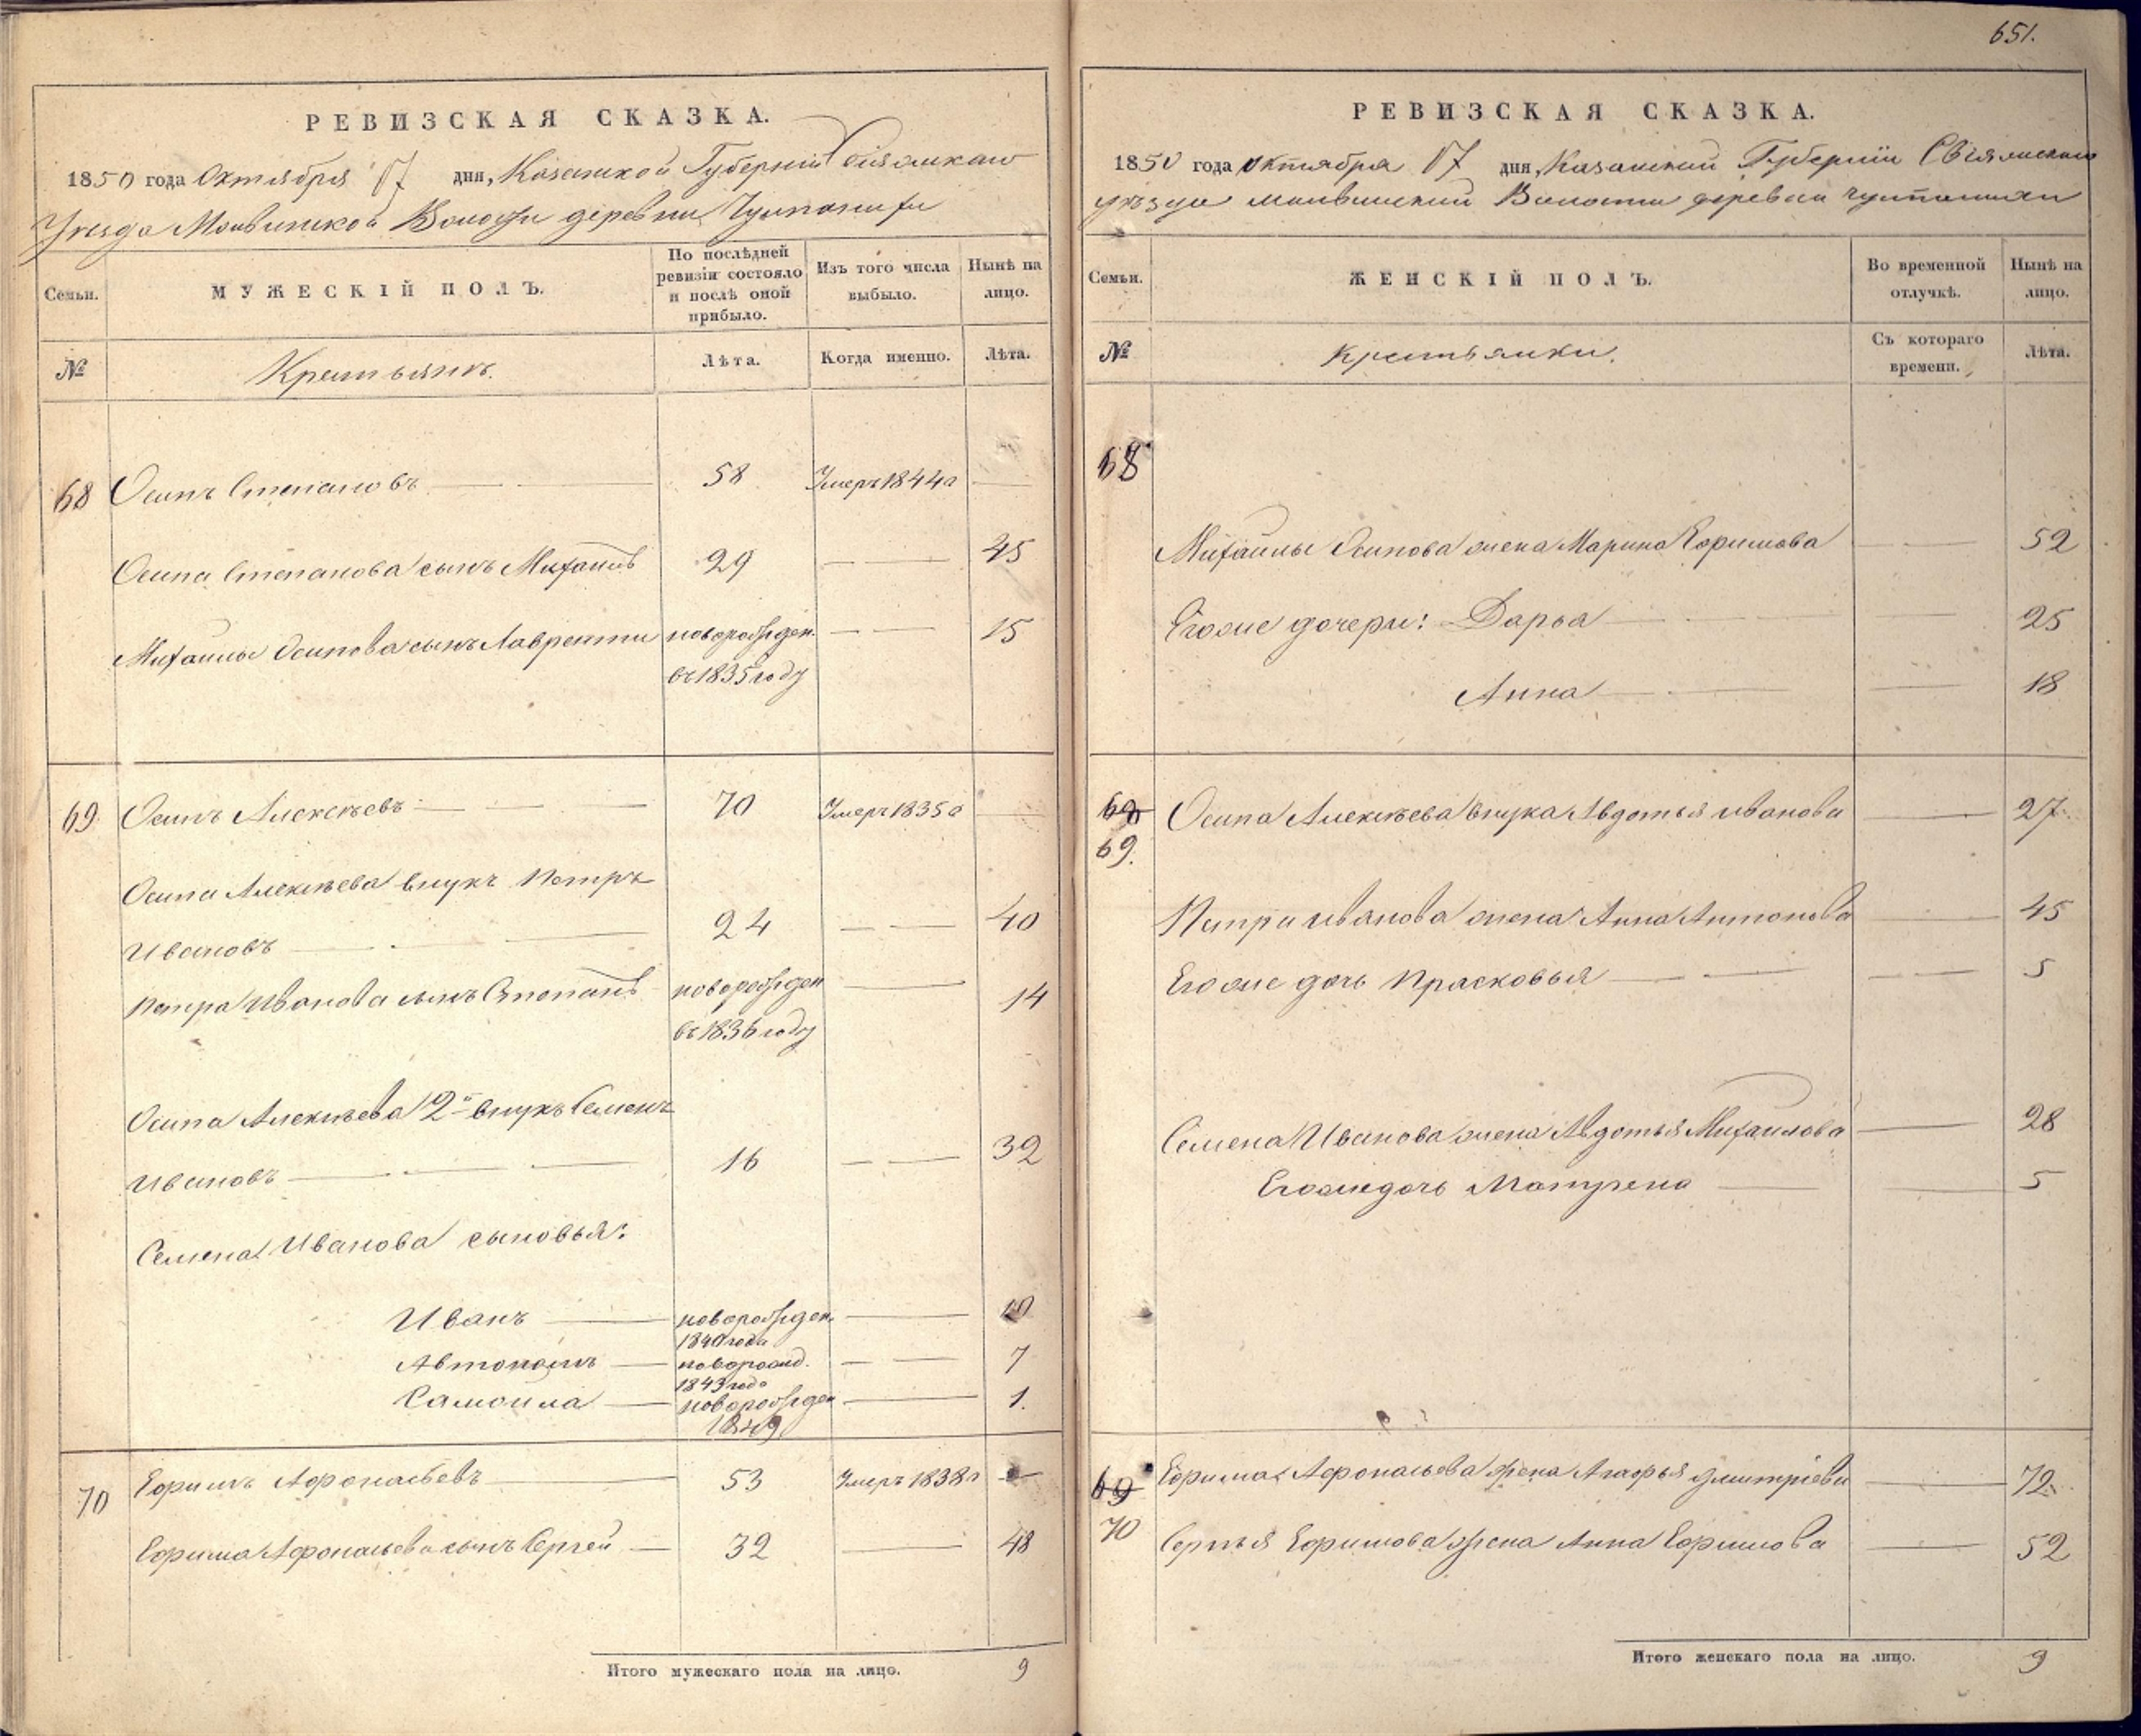 РЕВИЗСКАЯ СКАЗКА.
1850 года Октября 17 дня, Казанской Губернии Свіяжскаго
Уезда Молвинской Волости деревни
Семьи.
МУЖЕСКІЙ ПОЛЪ.
По послѣдней
ревизіи состояло
и послѣ оной
прибыло.
Изъ того числа
выбыло.
Нынѣ на
лицо.
№
Крестьянъ.
Лѣта.
Когда именно.
Лѣта.
68 Осипъ Степановъ 58 Умеръ 1844 г
Осипа Степанова сынъ Михаилъ 29 45
Михайлы Осипова сынъ Лаврентии новорожден. 15
въ 1835 году
69 Осипъ Алексѣевъ 70 Умеръ 1835 г
Осипа Алексѣева внукъ Петръ
Ивановъ 24 40
Петра Иванова сынъ Степанъ новорожден 14
въ 1836 году
Осипа Алексѣева 2й внукъ Семенъ
Ивановъ 16 32
Семена Иванова сыновья:
Иванъ новорожден. 10
1840 года
Автономъ новорожд. 7
1843 года
Самоила новорожден 1.
1849
70 Ефимъ Афонасьевъ 53 Умеръ 1838 г
Ефима Афонасьева сынъ Сергей 32 48
Итого мужескаго пола на лицо. 9
651.
РЕВИЗСКАЯ СКАЗКА.
1850 года октября 17 дня, Казанской Губерніи Свіяжскаго
уезда молвинской Волости деревни
Семьи.
ЖЕНСКІЙ ПОЛЪ.
Во временной
отлучкѣ.
Нынѣ на
лицо.
№
Крестьянки.
Съ котораго
времени.
Лѣта.
68
Михайлы Осипова жена Марина Ефимова 52
Егоже дочери: Дарья 25
Анна 18
68 Осипа Алексѣева внука Авдотья иванова 27.
69.
Петра иванова жена Анна Антонова 45
Егоже дочь Прасковья 5
Семена Иванова жена Авдотья Михаилова 28
Егоже дочь Матрена 5
69 Ефима Афонасьева жена Агафья дмитріева 72.
70 Сергья Ефимова жена Анна Ефимова 52
Итого женскаго пола на лицо. 9